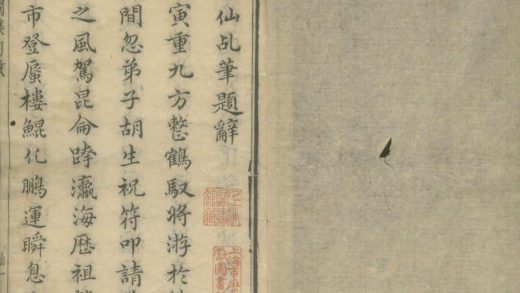 仙乩筆題辭
寅重九方整鶴馭將游於
間忽弟子胡生祝符叩請
之風駕昆侖跨瀛海歷祖
市登蜃樓鯤化鵬運瞬息
上海市歷